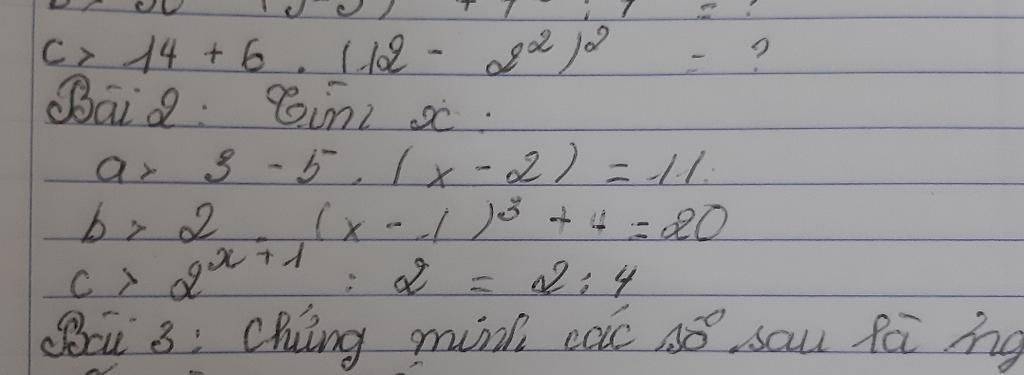 c> 14 + 6 . (12 - 2²)² = ?
Bài 2 : Tìm x :
a> 3 - 5 . (x - 2) = 11.
b> 2 . (x - 1)³ + 4 = 20
c> 2ˣ⁺¹ : 2 = 2 : 4
Bài 3 : Chứng minh các số sau là